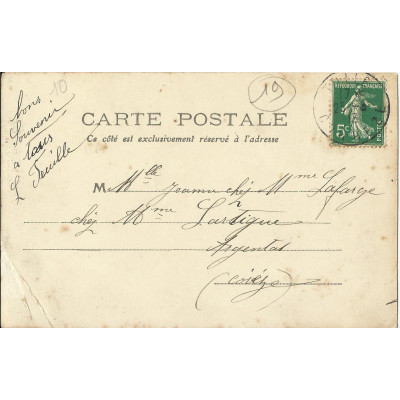 10
19
bons
Souvenir
a tous
L Feuille
CARTE POSTALE
Ce côté est exclusivement réservé à l'adresse
REPUBLIQUE FRANÇAISE
5c
POSTES
M Mlle Jeanne chéj Mme Lafarge
chéj Mme Lartigue
Argentat
(Corrèze)